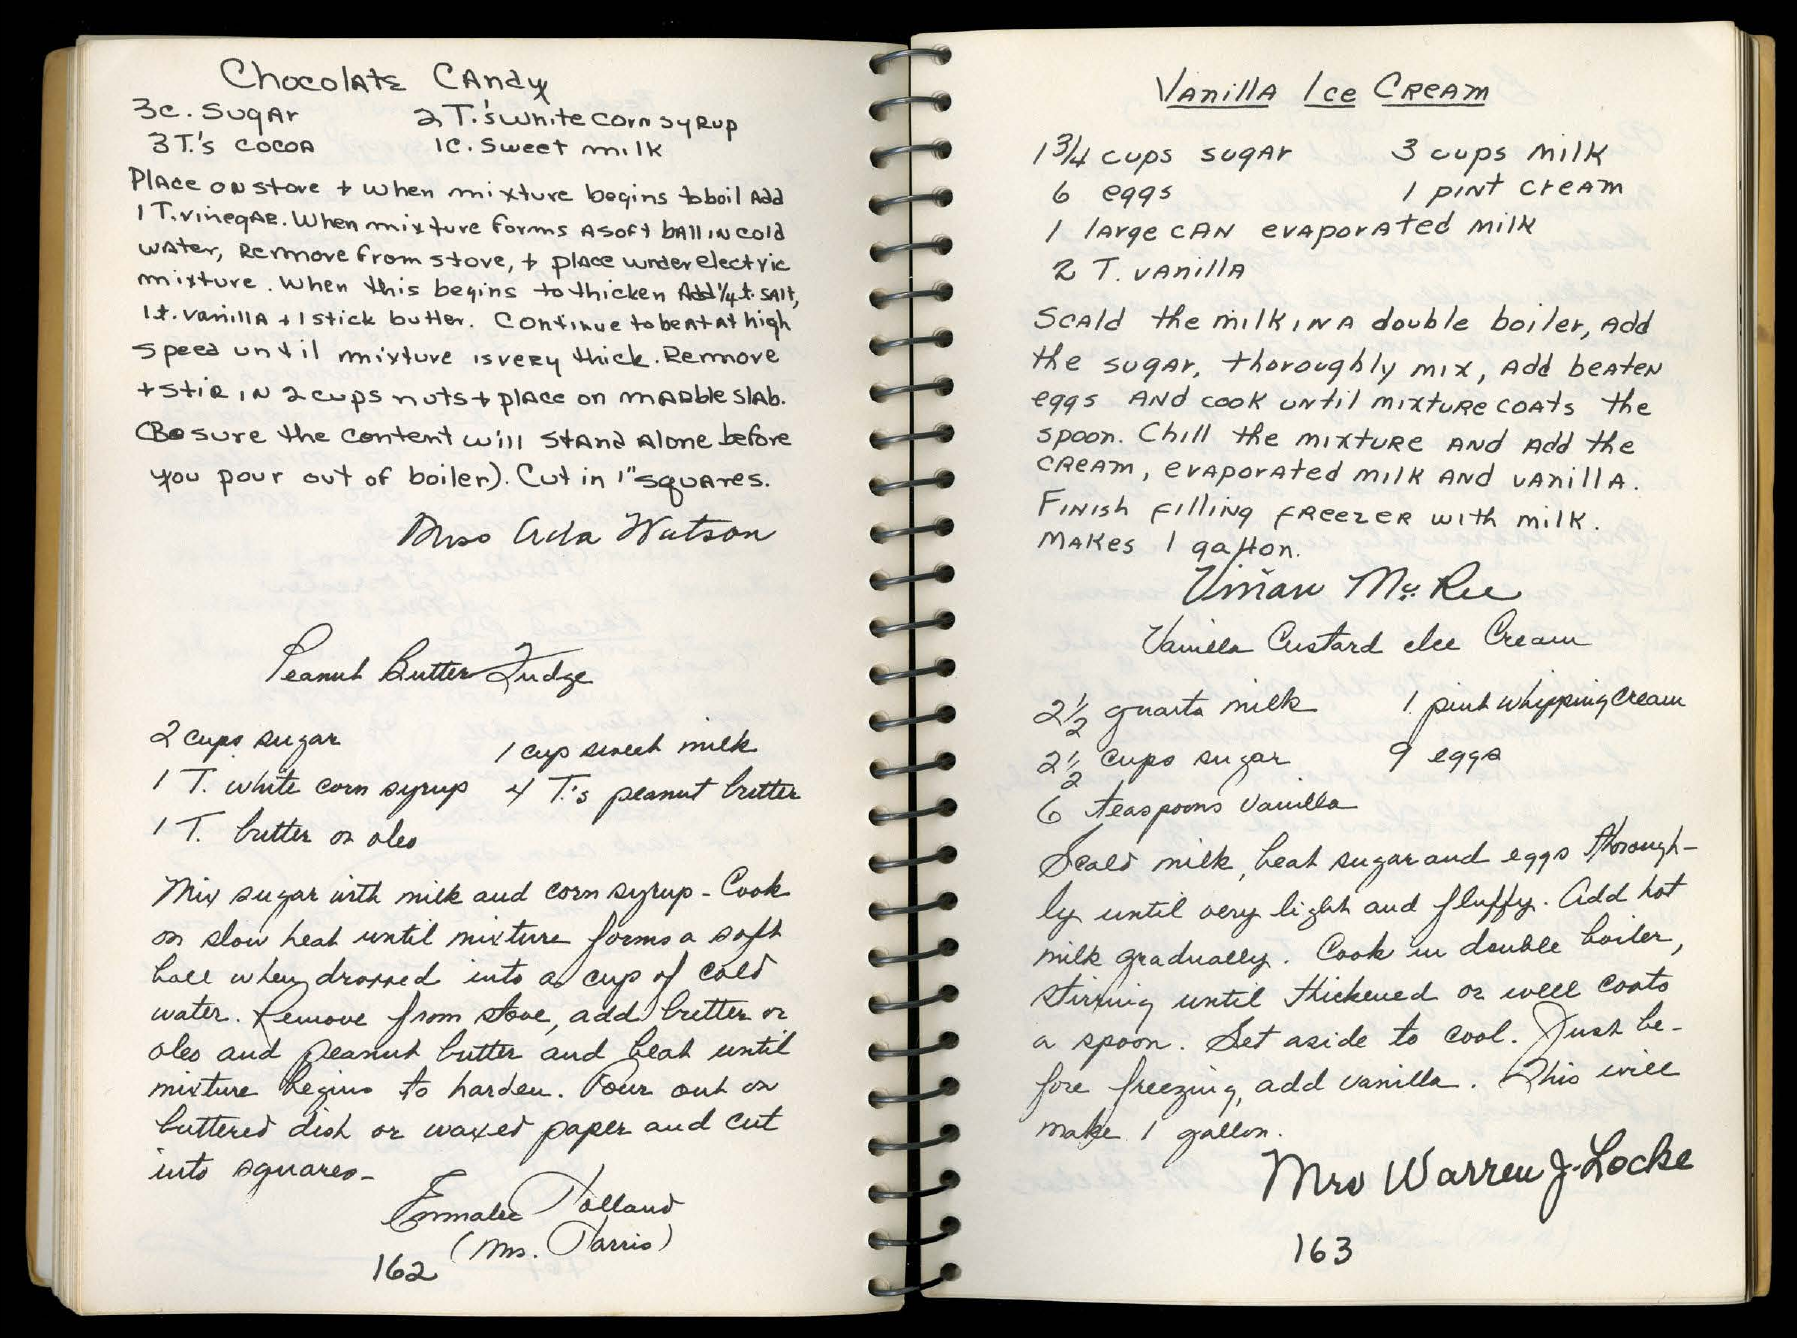 Chocolate Candy
3c. Sugar 2 T.'s white corn syrup
3 T.'s cocoa 1c. sweet milk
Place on stove + when mixture begins to boil add
1 T. vinegar. When mixture forms a soft ball in cold
water, remove from stove, + place under electric
mixture. When this begins to thicken Add 1/4 t. salt,
1 t. vanilla + 1 stick butter. Continue to beat at high
speed until mixture is very thick. Remove
+ stir in 2 cups nuts + place on marble slab.
(Be sure the content will stand alone before
you pour out of boiler). Cut in 1" squares.
Miss Ada Watson
Peanut Butter Fudge
2 cups sugar 1 cup sweet milk
1 T. white corn syrup 4 T.'s peanut butter
1 T. butter or oleo
Mix sugar with milk and corn syrup - Cook
on slow heat until mixture forms a soft
ball when dropped into a cup of cold
water. Remove from stove, add butter or
oleo and peanut butter and beat until
mixture begins to harden. Pour out on
buttered dish or waxed paper and cut
into squares -
Emmalee Holland
(Mrs. Harris)
162
Vanilla Ice Cream
1 3/4 cups sugar 3 cups milk
6 eggs 1 pint cream
1 large can evaporated milk
2 T. vanilla
Scald the milk in a double boiler, add
the sugar, thoroughly mix, add beaten
eggs and cook until mixture coats the
spoon. Chill the mixture and add the
cream, evaporated milk and vanilla.
Finish filling freezer with milk.
Makes 1 gallon.
Vivian McRee
Vanilla Custard Ice Cream
2 1/2 quarts milk 1 pint whipping cream
2 1/2 cups sugar 9 eggs
6 teaspoons vanilla
Scald milk, beat sugar and eggs thorough-
ly until very light and fluffy. Add hot
milk gradually. Cook in double boiler,
stirring until thickened or well coats
a spoon. Set aside to cool. Just be-
fore freezing, add vanilla. This will
make 1 gallon.
Mrs Warren J. Locke
163